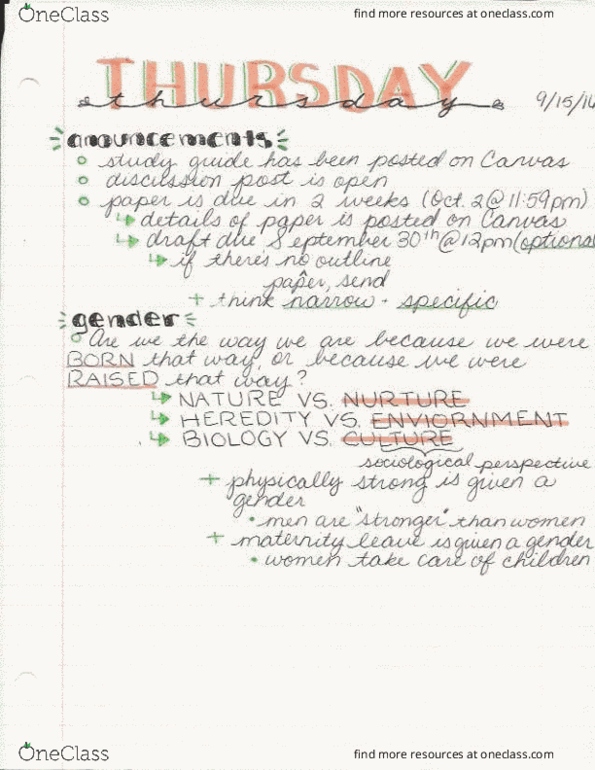 OneClass
find more resources at oneclass.com
THURSDAY
thursday
9/15/16
anouncements
study guide has been posted on Canvas
discussion post is open
paper is due in 2 weeks (Oct. 2 @ 11:59pm)
↳ details of paper is posted on Canvas
↳ draft due September 30th @ 12pm (optional
↳ if there's no outline
paper, send
+ think narrow + specific
gender
Are we the way we are because we were
BORN that way, or because we were
RAISED that way?
↳ NATURE VS. NURTURE
↳ HEREDITY VS. ENVIORNMENT
↳ BIOLOGY VS. CULTURE
sociological perspective
+ physically strong is given a
gender
• men are "stronger" than women
+ maternity leave is given a gender
• women take care of children
OneClass
find more resources at oneclass.com